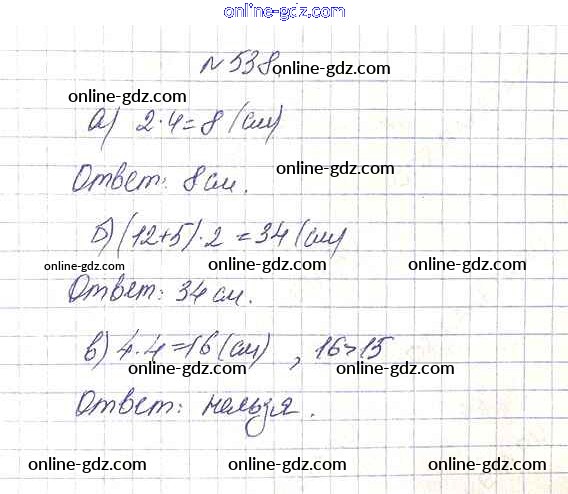 online-gdz.com
№ 538
online-gdz.com
online-gdz.com
а) 2·4=8 (см)
online-gdz.com
Ответ: 8 см.
б) (12+5)·2=34 (см)
online-gdz.com online-gdz.com online-gdz.com
Ответ: 34 см.
в) 4·4=16 (см), 16>15
online-gdz.com online-gdz.com
Ответ: нельзя.
online-gdz.com online-gdz.com online-gdz.com